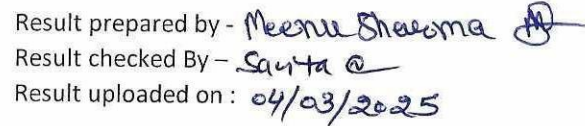 Result prepared by - Meenu Sharma
Result checked By – Savita
Result uploaded on : 04/03/2025